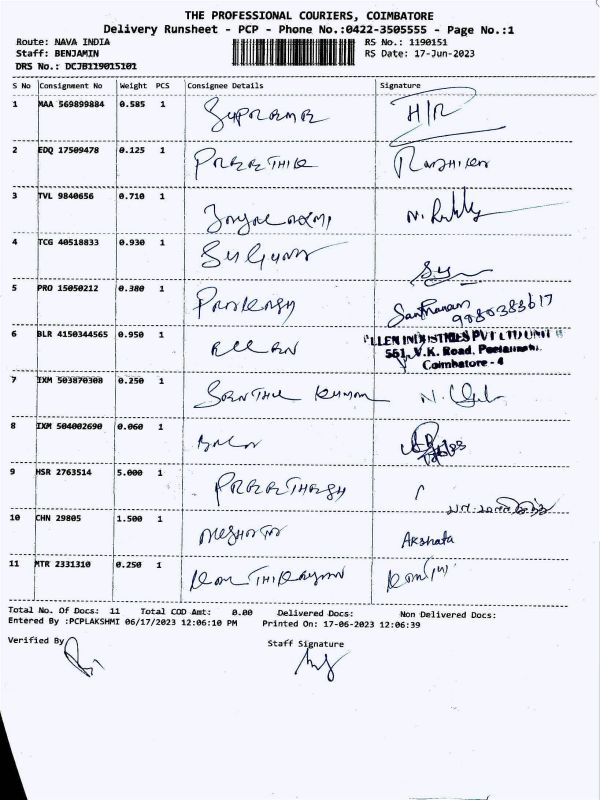 THE PROFESSIONAL COURIERS, COIMBATORE
Delivery Runsheet - PCP - Phone No.:0422-3505555 - Page No.:1
Route: NAVA INDIA RS No.: 1190151
Staff: BENJAMIN RS Date: 17-Jun-2023
DRS No.: DCJB119015101
S No Consignment No Weight PCS Consignee Details Signature
1 MAA 569899884 0.585 1 SUPREME H/R
2 EDQ 17509478 0.125 1 PREETHIE
3 TVL 9840656 0.710 1
4 TCG 40518833 0.930 1 SUGUNA
5 PRO 15050212 0.380 1 PRAKASH Santhanam
9880383617
6 BLR 4150344565 0.950 1 LLEN INDUSTRIES PVT LTD UNIT II
551, V.K. Road, Peelamedu,
Coimbatore - 4
7 IXM 503870308 0.250 1 SENTHIL KUMAR
8 IXM 504002690 0.060 1
9 HSR 2763514 5.000 1 PREETHESH
10 CHN 29805 1.500 1 Akshata
11 MTR 2331310 0.250 1
Total No. Of Docs: 11 Total COD Amt: 0.00 Delivered Docs: Non Delivered Docs:
Entered By :PCPLAKSHMI 06/17/2023 12:06:10 PM Printed On: 17-06-2023 12:06:39
Verified By Staff Signature